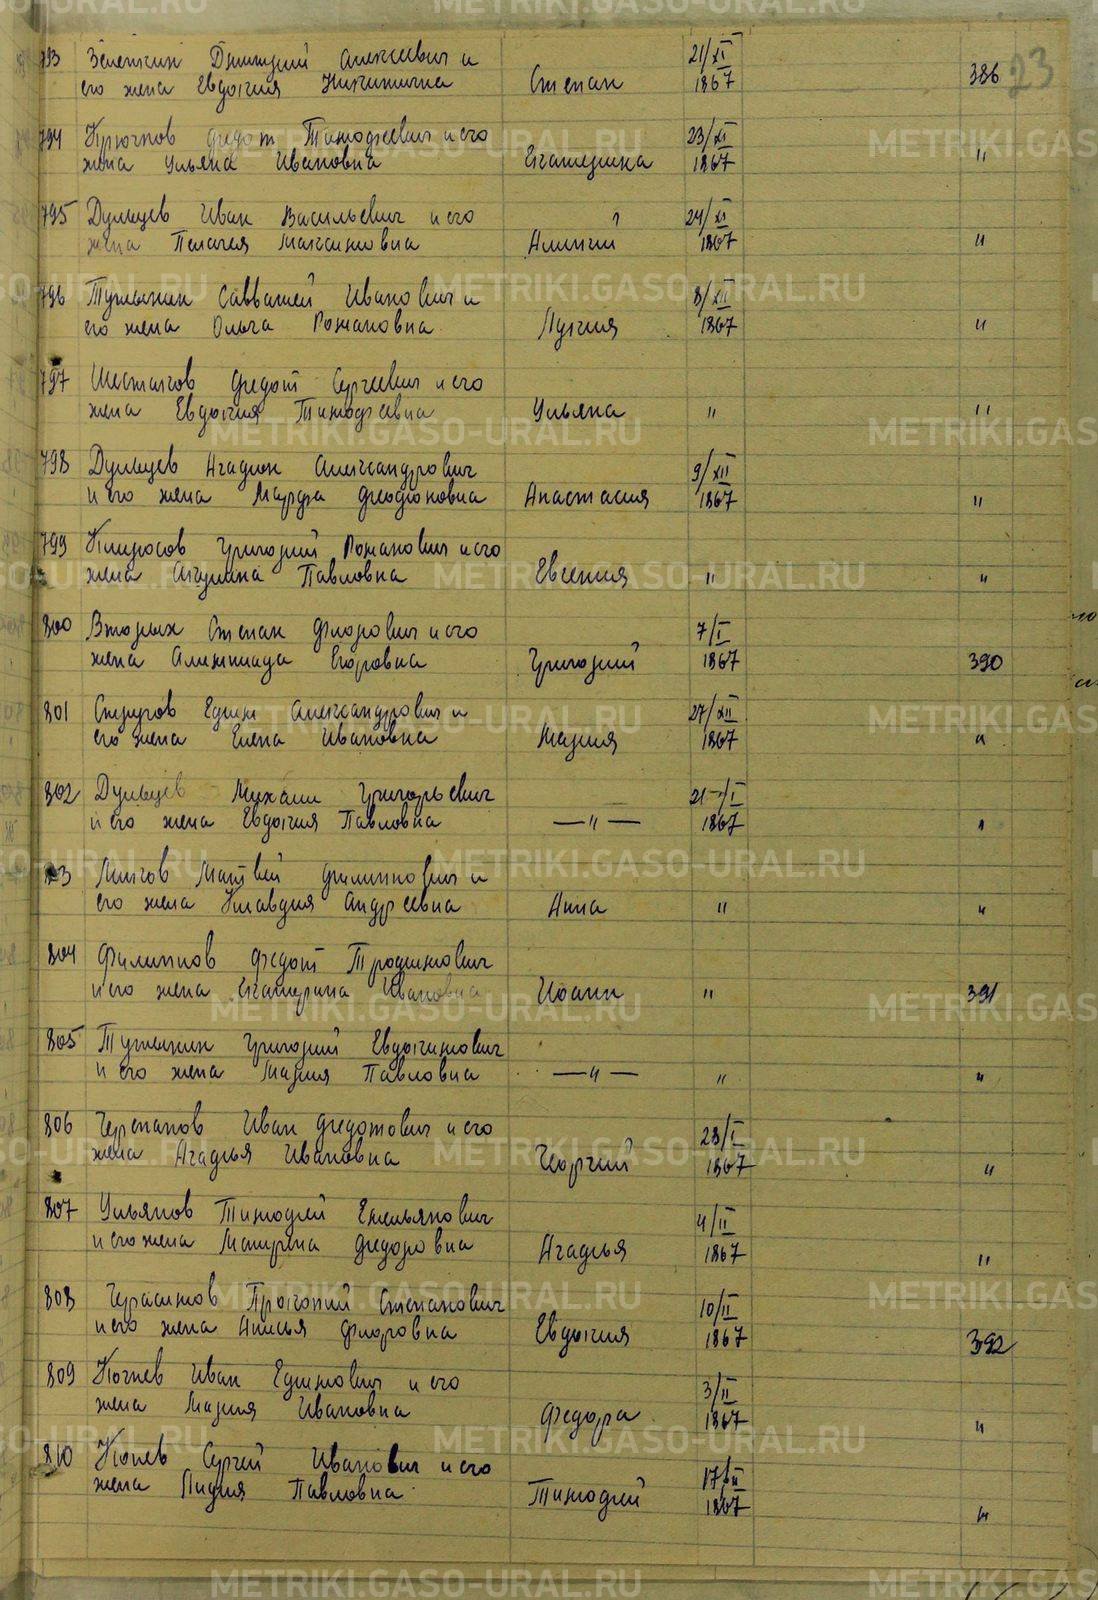 23
793 Зеленкин Дмитрий Алексеевич и
его жена Евдокия Никитична Степан 21/XI 1867 386
794 Крючков Федот Тимофеевич и его
жена Ульяна Ивановна Екатерина 23/XI 1867 "
795 Дульцев Иван Васильевич и его
жена Пелагея Максимовна 24/XI 1867 "
796 Савватей Иванович и
его жена Ольга Романовна Лукия 8/XII 1867 "
797 Шестаков Федот Сергеевич и его
жена Евдокия Тимофеевна Ульяна " "
798 Дульцев Александрович
и его жена Марфа Анастасия 9/XII 1867 "
799 Григорий Романович и его
жена Акулина Павловна Евгения " "
800 Вторых Степан Флорович и его
жена Егоровна Григорий 7/I 1867 390
801 Ефим Александрович и
его жена Елена Ивановна Мария 27/XII 1867 "
802 Дульцев Михаил Григорьевич
и его жена Евдокия Павловна — " — 21/I 1867 "
803 Матвей Филиппович и
его жена Клавдия Андреевна Анна " "
804 Филиппов Федот Трофимович
и его жена Екатерина Ивановна Иоанн " 391
805 Григорий Евдокимович
и его жена Мария Павловна — " — " "
806 Черепанов Иван Федотович и его
жена Агафья Ивановна Георгий 28/I 1867 "
807 Ульянов Тимофей Емельянович
и его жена Матрена Федоровна Агафья 4/II 1867 "
808 Герасимов Прокопий Степанович
и его жена Анисья Флоровна Евдокия 10/II 1867 392
809 Иван Ефимович и его
жена Мария Ивановна Федора 3/II 1867 "
810 Сергей Иванович и его
жена Лидия Павловна Тимофей 17/II 1867 "
METRIKI.GASO-URAL.RU